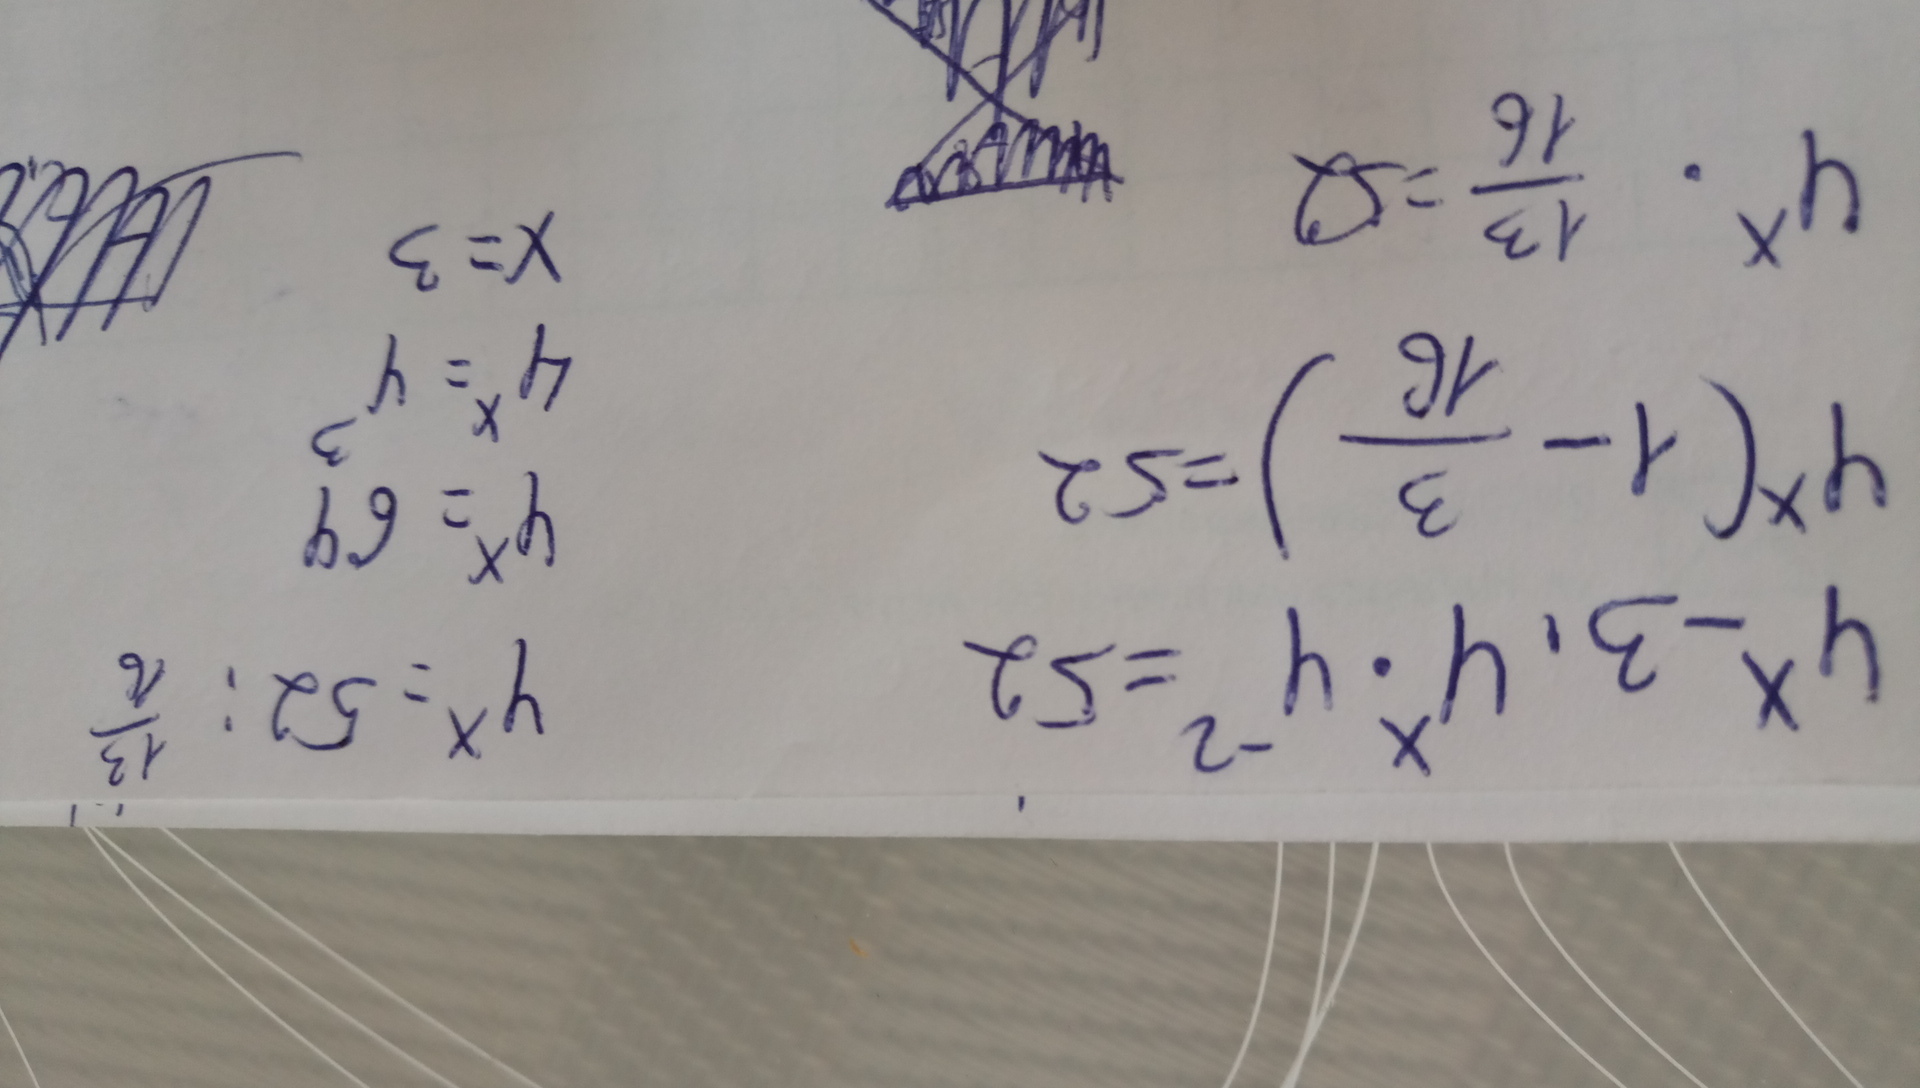 4^x - 3 · 4^x · 4^-2 = 52
4^x (1 - 3/16) = 52
4^x · 13/16 = 52
4^x = 52 : 13/16
4^x = 64
4^x = 4^3
x = 3